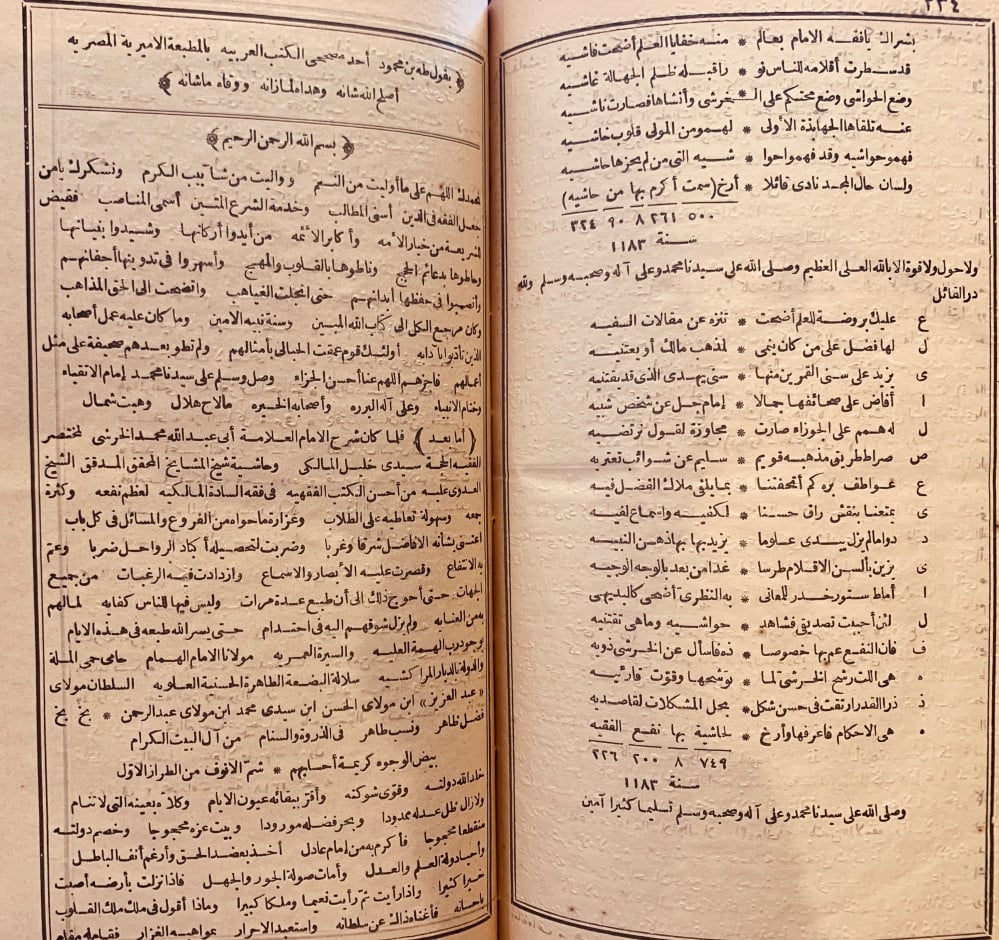 ٢٣٤
بشراك يا فقه الامام بعالم * منه خفايا العلم أضحت فاشيه
قد سطرت أقلامه للناس نو * راقبله ظلم الجهالة غاشيه
وضع الحواشى وضع محتكم على الـ * خرشى وأنشاها فصارت ناشيه
عنه تلقاها الجهابذة الأولى * لهمو من المولى قلوب خاشيه
فهمو حواشيه وقد فهموا حوا * شيه التى من لم يحزها حاشيه
ولسان حال المجد نادى قائلا * أرخ (سمت أكرم بها من حاشيه)
٥٠٠ ٢٦١ ٨ ٩٠ ٣٢٤
سنة ١١٨٣
ولا حول ولا قوة الا بالله العلى العظيم وصلى الله على سيدنا محمد وعلى آله وصحبه وسلم ولله
در القائل
ع عليك بروضة للعلم أضحت * تنزه عن مقالات السفيه
ل لها فضل على من كان ينمى * لمذهب مالك أو يعتنيه
ى يزيد على سنى القمرين منها * سنى يهدى الذى قد يقتنيه
ا أفاض على صحائفها جمالا * امام جل عن شخص شبيه
ل له همم على الجوزاء صارت * مجاوزة لقول نرتضيه
ص صراط طريق مذهبه قويم * سليم عن شوائب تعتريه
ع عواطف بره كم أتحفتنا * بما يلقى ملاك الفضل فيه
ى يمتعنا بنقش راق حسنا * لكفيه واسماع لفيه
د دواما لم يزل يبدى علوما * يزيد بها بها ذهن النبيه
ى يزين بألسن الاقلام طرسا * غدا من بعد بالوجه الوجيه
ا أماط ستور خدر للمعانى * به النظرى أضحى كالبديهى
ل لئن أحببت تصديقى فشاهد * حواشيه وما هى تقتنيه
ف فان النفع عم بها خصوصا * ذه فاسأل عن الخرشى ذويه
ه هى اللت رشح الخرشى لما * توشحها وقوت قارئيه
ذ ذرا القدر ارتقت فى حسن شكل * بحل المشكلات لقاصديه
ه هى الاحكام فاعرفها وأرخ * لحاشية بها نفع الفقيه
٧٤٩ ٨ ٢٠٠ ٢٢٦
سنة ١١٨٣
وصلى الله على سيدنا محمد وعلى آله وصحبه وسلم تسليما كثيرا آمين
﴿ يقول طه بن محمود أحد مصححى الكتب العربيه بالمطبعة الاميرية المصريه
أصلح الله شانه وهداه لما زانه ووقاه ما شانه ﴾
﴿ بسم الله الرحمن الرحيم ﴾
نحمدك اللهم على ما أوليت من النعم وواليت من شآبيب الكرم ونشكرك يا من
جعل الفقه فى الدين أسنى المطالب وخدمة الشرع المتين أسمى المناصب فقيض
للشريعة من خيار الأمه وأكابر الأئمه من أيدوا أركانها وشيدوا بنيانها
وحاطوها بدعائم الحجج وناطوها بالقلوب والمهج وأسهروا فى تدوينها أجفانهم
وأنصبوا فى حفظها أبدانهم حتى انجلت الغياهب واتضحت الى الحق المذاهب
وكان مرجع الكل الى كتاب الله المبين وسنة نبيه الامين وما كان عليه عمل أصحابه
الذين تأدبوا بآدابه أولئك قوم عقمت الحبالى بأمثالهم ولم تطو بعدهم صحيفة على مثل
أعمالهم فاجزهم اللهم عنا أحسن الجزاء وصل وسلم على سيدنا محمد إمام الاتقياء
وختام الانبياء وعلى آله البرره وأصحابه الخيره ما لاح هلال وهبت شمال
﴿أما بعد﴾ فلما كان شرح الامام العلامة أبى عبد الله محمد الخرشى لمختصر
الفقيه الحجة سيدى خليل المالكى وحاشية شيخ المشايخ المحقق المدقق الشيخ
العدوى عليه من أحسن الكتب الفقهيه فى فقه السادة المالكيه لعظم نفعه وكثرة
جمعه وسهولة تعاطيه على الطلاب وغزارة ما حواه من الفروع والمسائل فى كل باب
اعتنى بشأنه الافاضل شرقا وغربا وضربت لتحصيله أكباد الرواحل ضربا وعم
به الانتفاع وقصرت عليه الأبصار والاسماع وازدادت فيه الرغبات من جميع
الجهات حتى أحوج ذلك الى أن طبع عدة مرات وليس فيها للناس كفايه لما لهم
به من العنايه ولم يزل شوقهم اليه فى احتدام حتى يسر الله طبعه فى هذه الايام
بوجود رب الهمة العليه والسيرة العمريه مولانا الامام الهمام حامى حمى الملة
والدولة بالديار المراكشيه سلالة البضعة الطاهرة الحسنية العلويه السلطان مولاى
«عبد العزيز» ابن مولاى الحسن ابن سيدى محمد ابن مولاى عبد الرحمن * بخ بخ
فضل ظاهر ونسب طاهر فى الذروة والسنام من آل البيت الكرام
بيض الوجوه كريمة أحسابهم * شم الأنوف من الطراز الاول
خلد الله دولته وقوى شوكته وأقر ببقائه عيون الايام وكلأه بعينه التى لا تنام
ولا زال ظل عدله ممدودا وبحر فضله مورودا وبيت عزه محجوجا وخصم دولته
منقطعا محجوجا فأكرم به من إمام عادل أخذ بعضد الحق وأرغم أنف الباطل
وأحيا دولة العلم والعدل وأمات صولة الجور والجهل فاذا نزلت بأرضه أصبت
خيرا كثيرا واذا رأيت ثم رأيت نعيما وملكا كبيرا وماذا أقول فى ملك ملك القلوب
باحسانه فأغناه ذاك عن سلطانه واستعبد الاحرار بمواهبه الغزار فقام له مقام